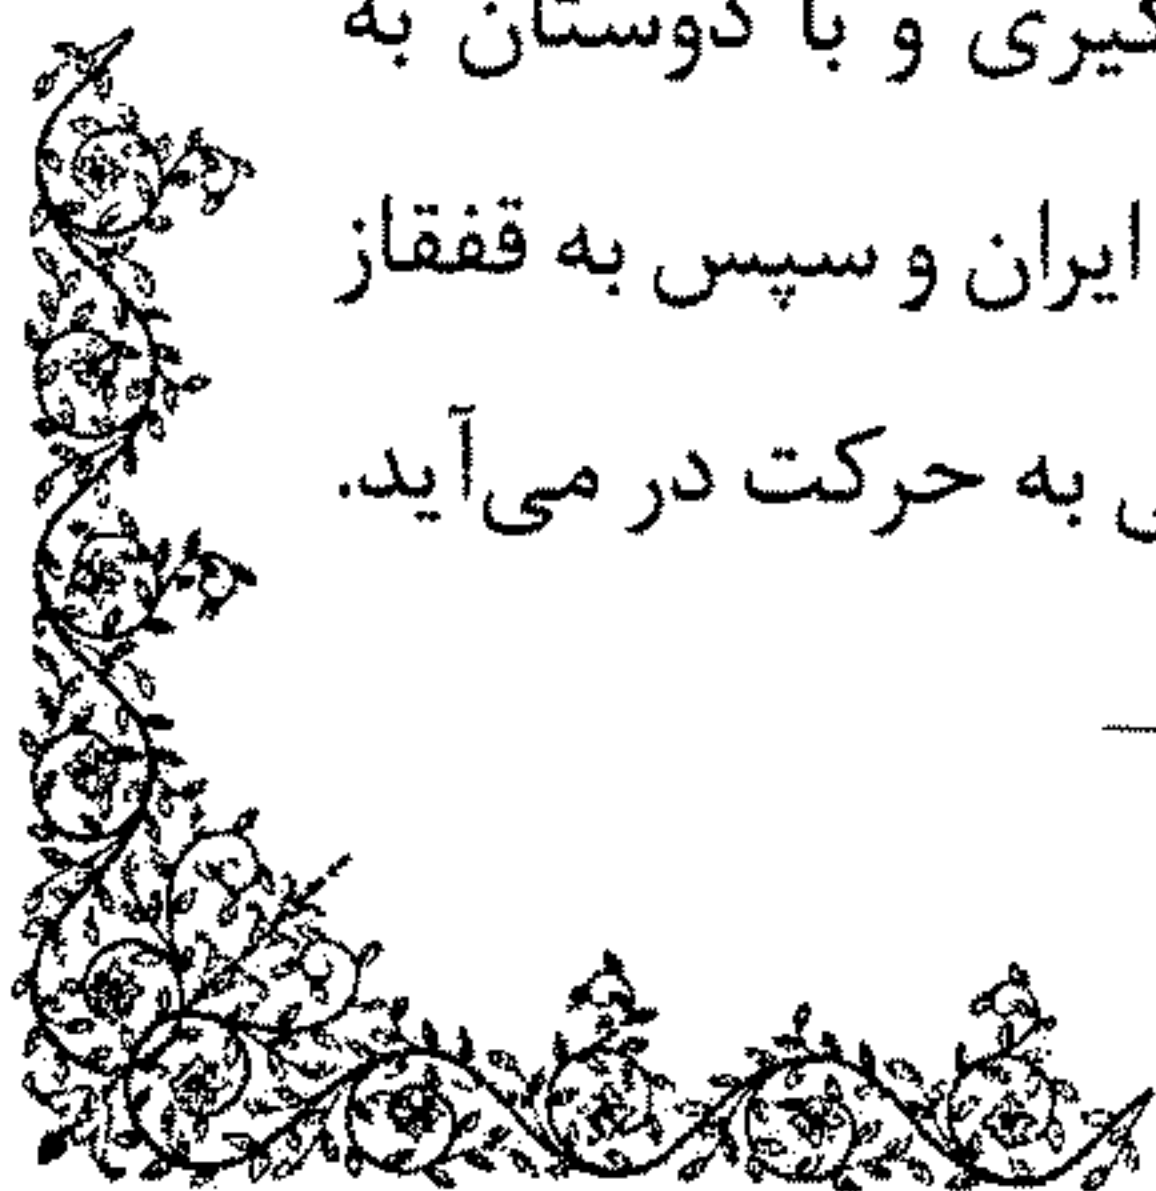 گیری و با دوستان به
ایران و سپس به قفقاز
به حرکت در می‌آید.